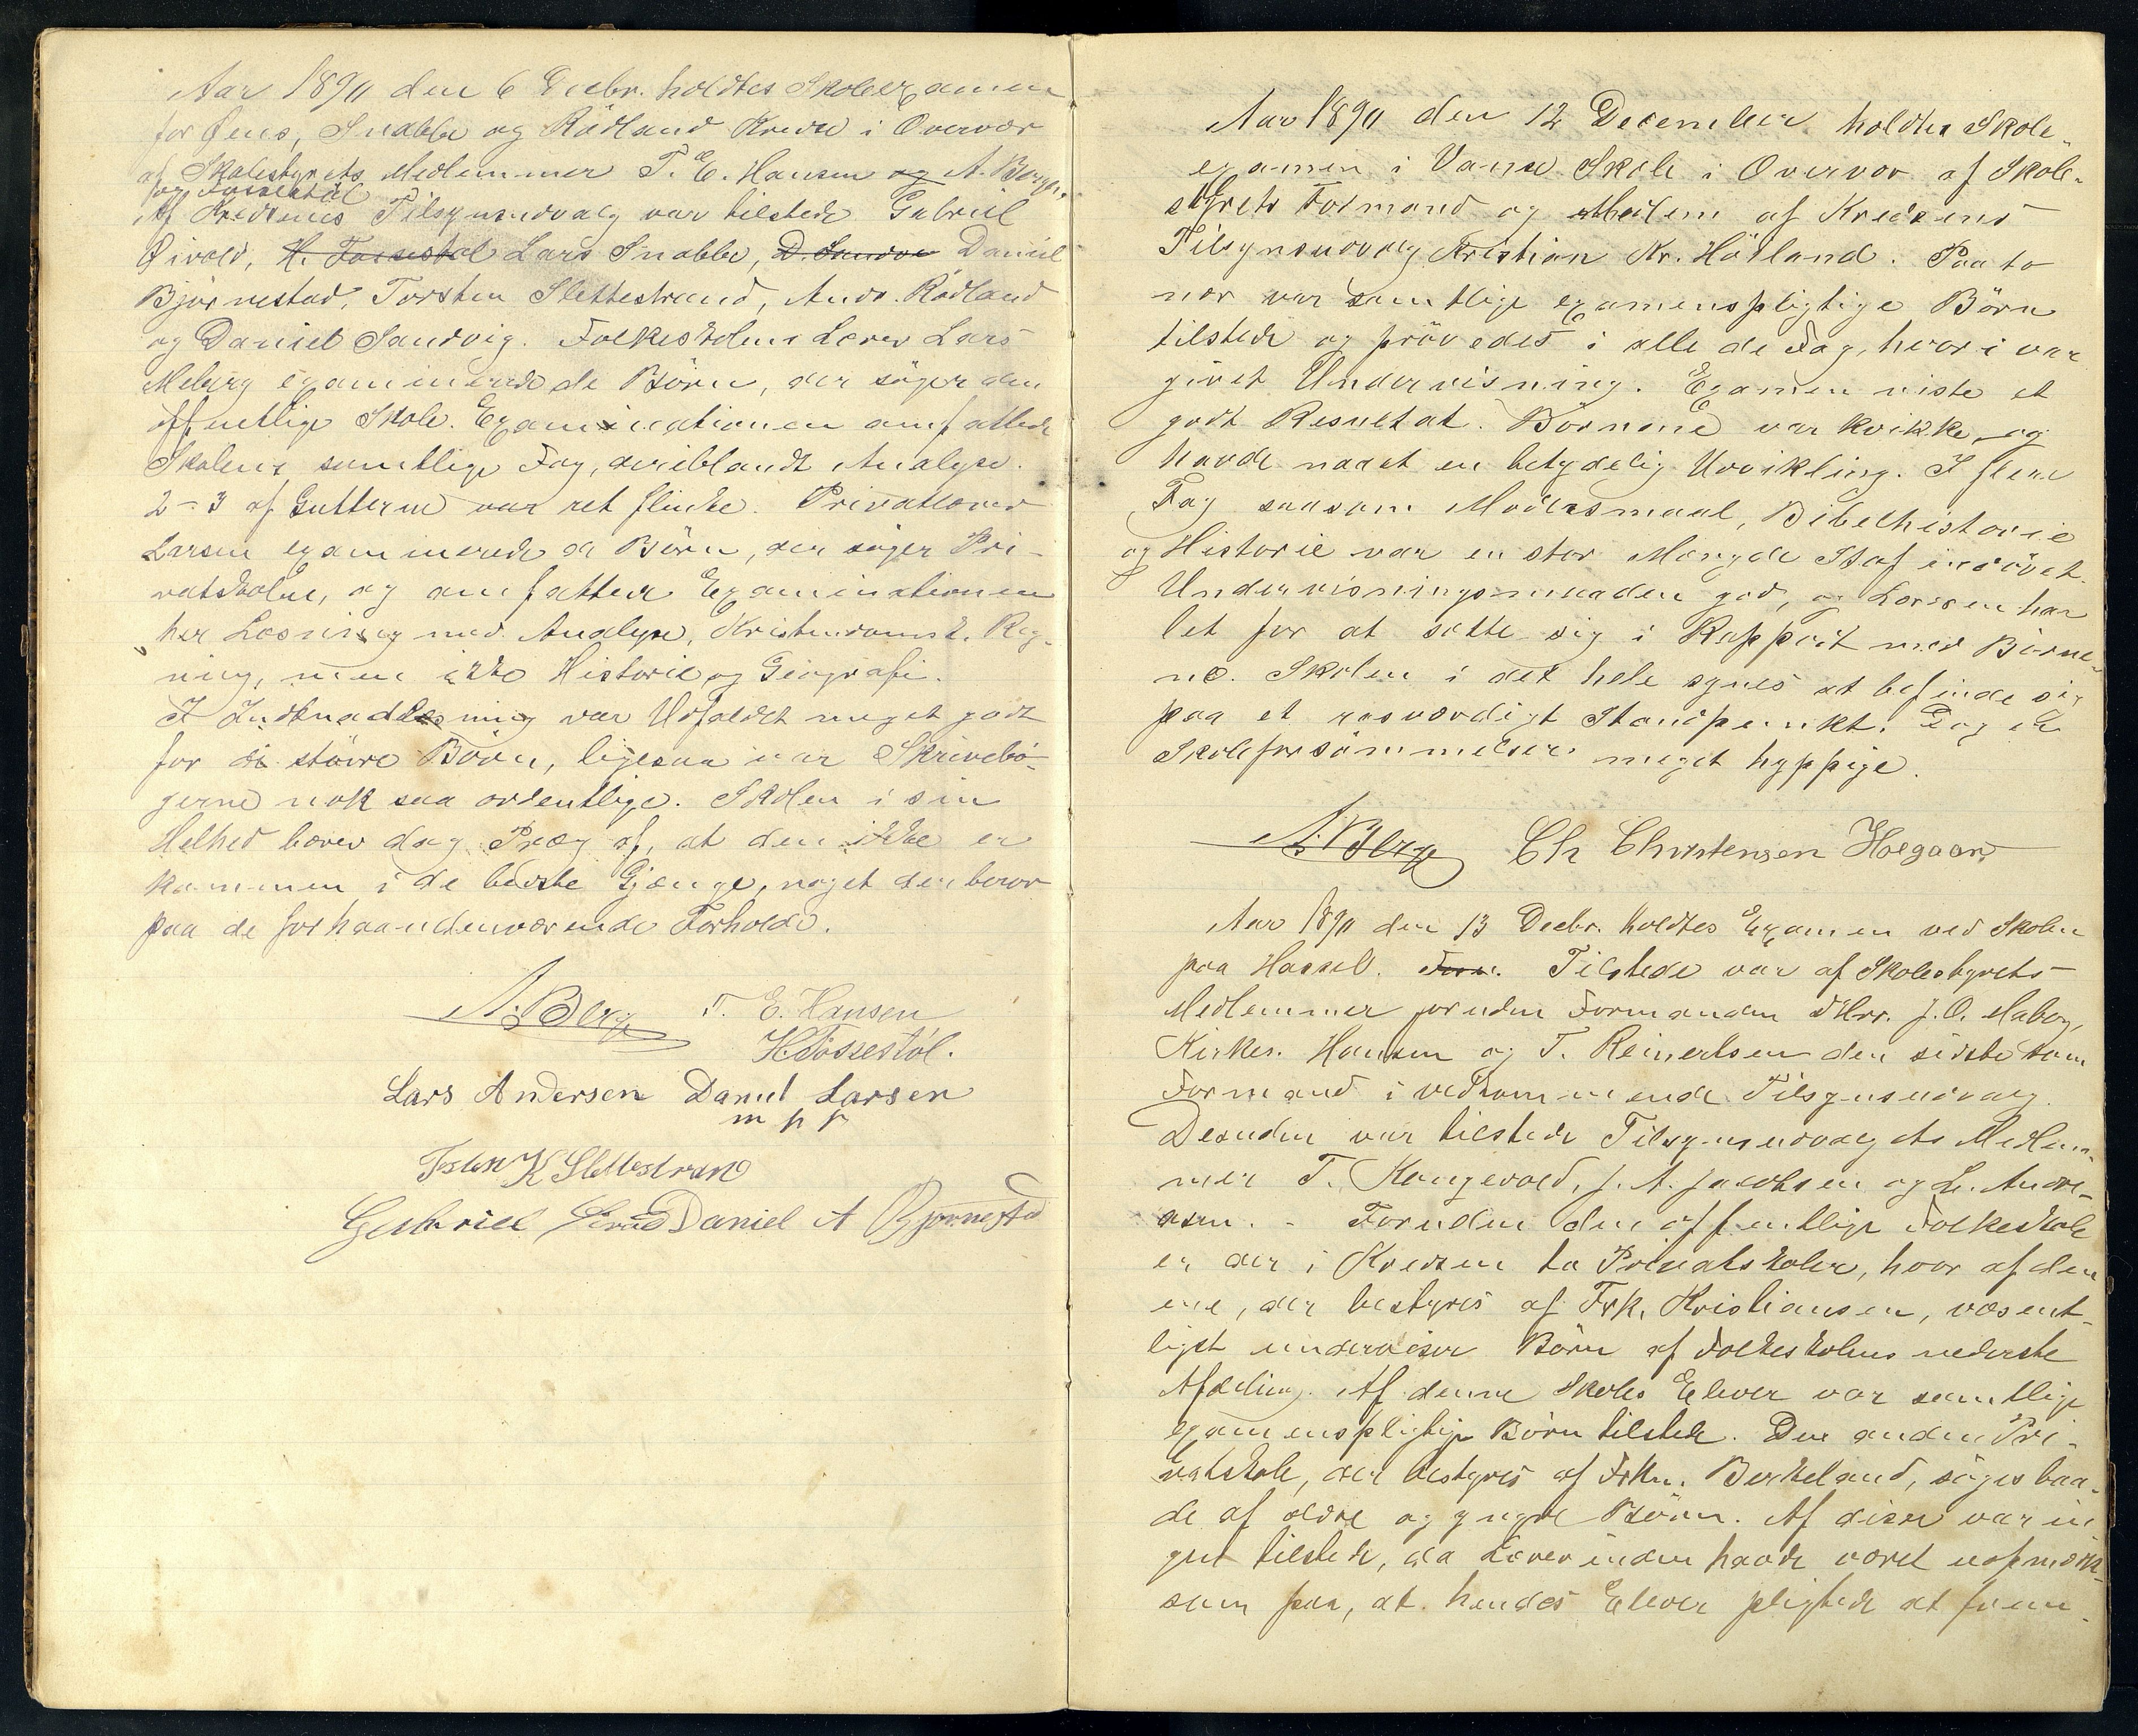 Aar 1890 den 6 Decbr. holdtes Skoleexamen
for Øens, Snabbe og Rødland Kreds i Overvær
af Skolestyrets Medlemmer T. E. Hansen og A. Berge.
og Fossestøl
Af Kredsenes Tilsynsudvalg var tilstede Gabriel
Eivold, H. Fossestøl Lars Snabbe, D. Sandv Daniel
Bjørnestad, Torsten Slettestrand, Andr. Rødland
og Daniel Sandvig. Folkeskolens Lærer Lars
Meberg examinerede de Børn, der søger den
offentlige Skole. Examinationen omfattede
Skolens samtlige Fag, deriblandt Analyse.
2-3 af Gutterne var ret flinke. Privatlærer
Larsen examinerede de Børn, der søger Pri-
vatskolen, og omfatter Examinationen
her Læsning med Analyse, Kristendomsk. Reg-
ning, men ikke Historie og Geografi.
I Indenadlæsning var Udfaldet meget godt
for de større Børn, ligesaa var Skrivebø-
gerne nok saa ordentlige. Skolen i sin
Helhed bærer dog Præg af, at den ikke er
kommen i de bedste Gjænge, noget der beror
paa de forhaandenværende Forholde.
A. Berge T. E. Hansen
H. Fossestøl.
Lars Andersen Daniel Larsen
m p r
Tosten K Slettestrand
Gabriel Daniel A Bjørnestad
Aar 1890 den 12 December holdtes Skole-
examen i Vanse Skole i Overvær af Skole-
styrets Formand og Medlem af Kredsens
Tilsynsudvalg Kristian Kr. Høiland. Paa to
nær var samtlige examenspligtige Børn
tilstede og prøvedes i alle de Fag, hvori var
givet Undervisning. Examen viste et
godt Resultat. Børnene var kvikke, og
havde naaet en betydelig Udvikling. I flere
Fag saasom Modersmaal, Bibelhistorie
og Historie var en stor Mængde Stof indøvet.
Undervisningsmaaden god, og Læreren har
let for at sætte sig i Rapport med Børne-
ne. Skolen i det hele synes at befinde sig
paa et rosværdigt Standpunkt. Dog er
Skoleforsømmelser meget hyppige.
A. Berge Ch Christensen Hoegaard
Aar 1890 den 13 Decbr. holdtes Examen ved Skolen
paa Hassel. Foru. Tilstede var af Skolestyrets
Medlemmer foruden Formanden d'Hrr. J. O. Maberg,
Kirkes. Hansen og T. Reinertsen den sidste som
Formand i vedkommende Tilsynsudvalg.
Desuden var tilstede Tilsynsudvalgets Medlem-
mer T. Kongevold, J. A. Jacobsen og L. Andre-
asen. - Foruden den offentlige Folkeskole
er der i Kredsen to Privatskoler, hvoraf den
ene, der bestyres af Frk. Kristiansen, væsent-
ligst underviser Børn af Folkeskolens nederste
Afdeling. Af denne Skoles Elever var samtlige
examenspligtige Børn tilstede. Den anden Pri-
vatskole, der bestyres af Frkn. Berkeland, søges baa-
de af ældre og yngre Børn. Af disse var in
gen tilstede, da Lærerinden havde været uopmærk-
som paa, at hendes Elever pligtede at frem-